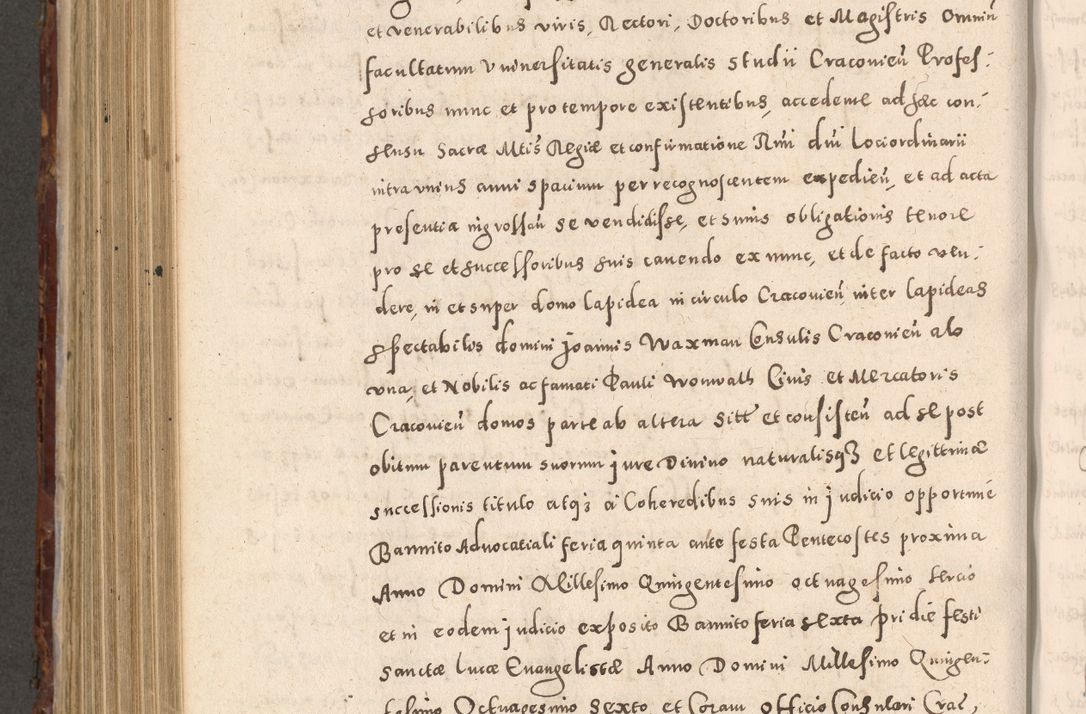 et venerabilibus viris, Rectori, Doctoribus et Magistris Omniũ
facultatum Vniuersitatis generalis studii Cracovien̄ Profes:
soribus nunc et pro tempore existentibus, accedente ad hæc con:
sensu Sacræ Mtis Regiæ et confirmatione Rmi dni Lociordinarii
intra vnius anni spacium per recognoscentem expedien̄, et ad acta
presentia ingrossan̄ se vendidisse, et suuis obligationis tenore
pro se et successoribus suis cauendo ex nunc, et de facto ven:
dere, in et super domo lapidea in circulo Cracouien̄, inter lapideas
spectabilis domini Joannis Waxman Consulis Cracouien̄ ab
vna, et Nobilis ac famati Pauli Wonwalh Ciuis et Mercatoris
Cracouien̄ domos parte ab altera sitt̄ et consisten̄ ad se post
obitum parentum suorum jure Diuino naturalisqȝ et legittimæ
successionis titulo atqȝ a Coheredibus suis in judicio opportune
Bannito Aduocatiali feria quinta ante festa Pentecostes proxima
Anno Domini Millesimo Quingentesimo octuagesimo tercio
et in eodem judicio exposito Bannito feria sexta pridie festi
Sanctæ Lucæ Euangelistæ Anno Domini Millesimo Quingen:
tesimo Octuagesimo Sexto et Coram officio Consulari Crac,